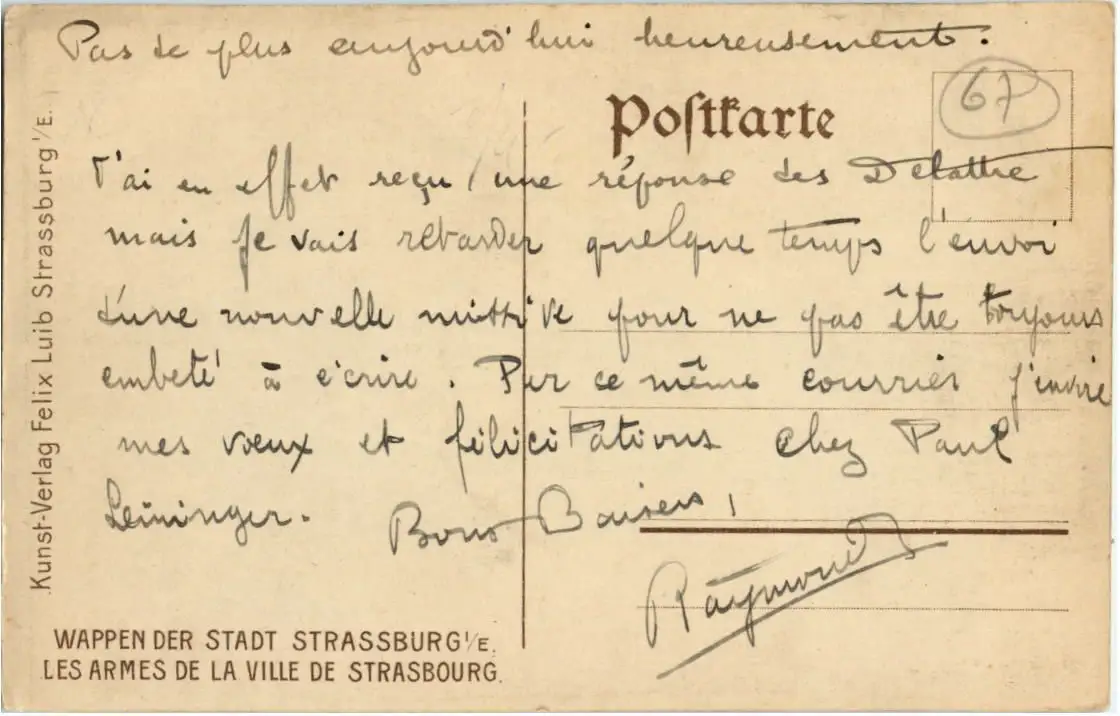 Pas de plus aujourd'hui heureusement.
Postkarte
67
J'ai en effet reçu une réponse des Delattre
mais je vais retarder quelque temps l'envoi
d'une nouvelle missive pour ne pas être toujours
embeté à écrire. Par ce même courrier j'envoie
mes vœux et félicitations chez Paul
Leininger. Bons Baisers,
Raymond
Kunst-Verlag Felix Luib Strassburg i/E.
WAPPEN DER STADT STRASSBURG i/E.
LES ARMES DE LA VILLE DE STRASBOURG.